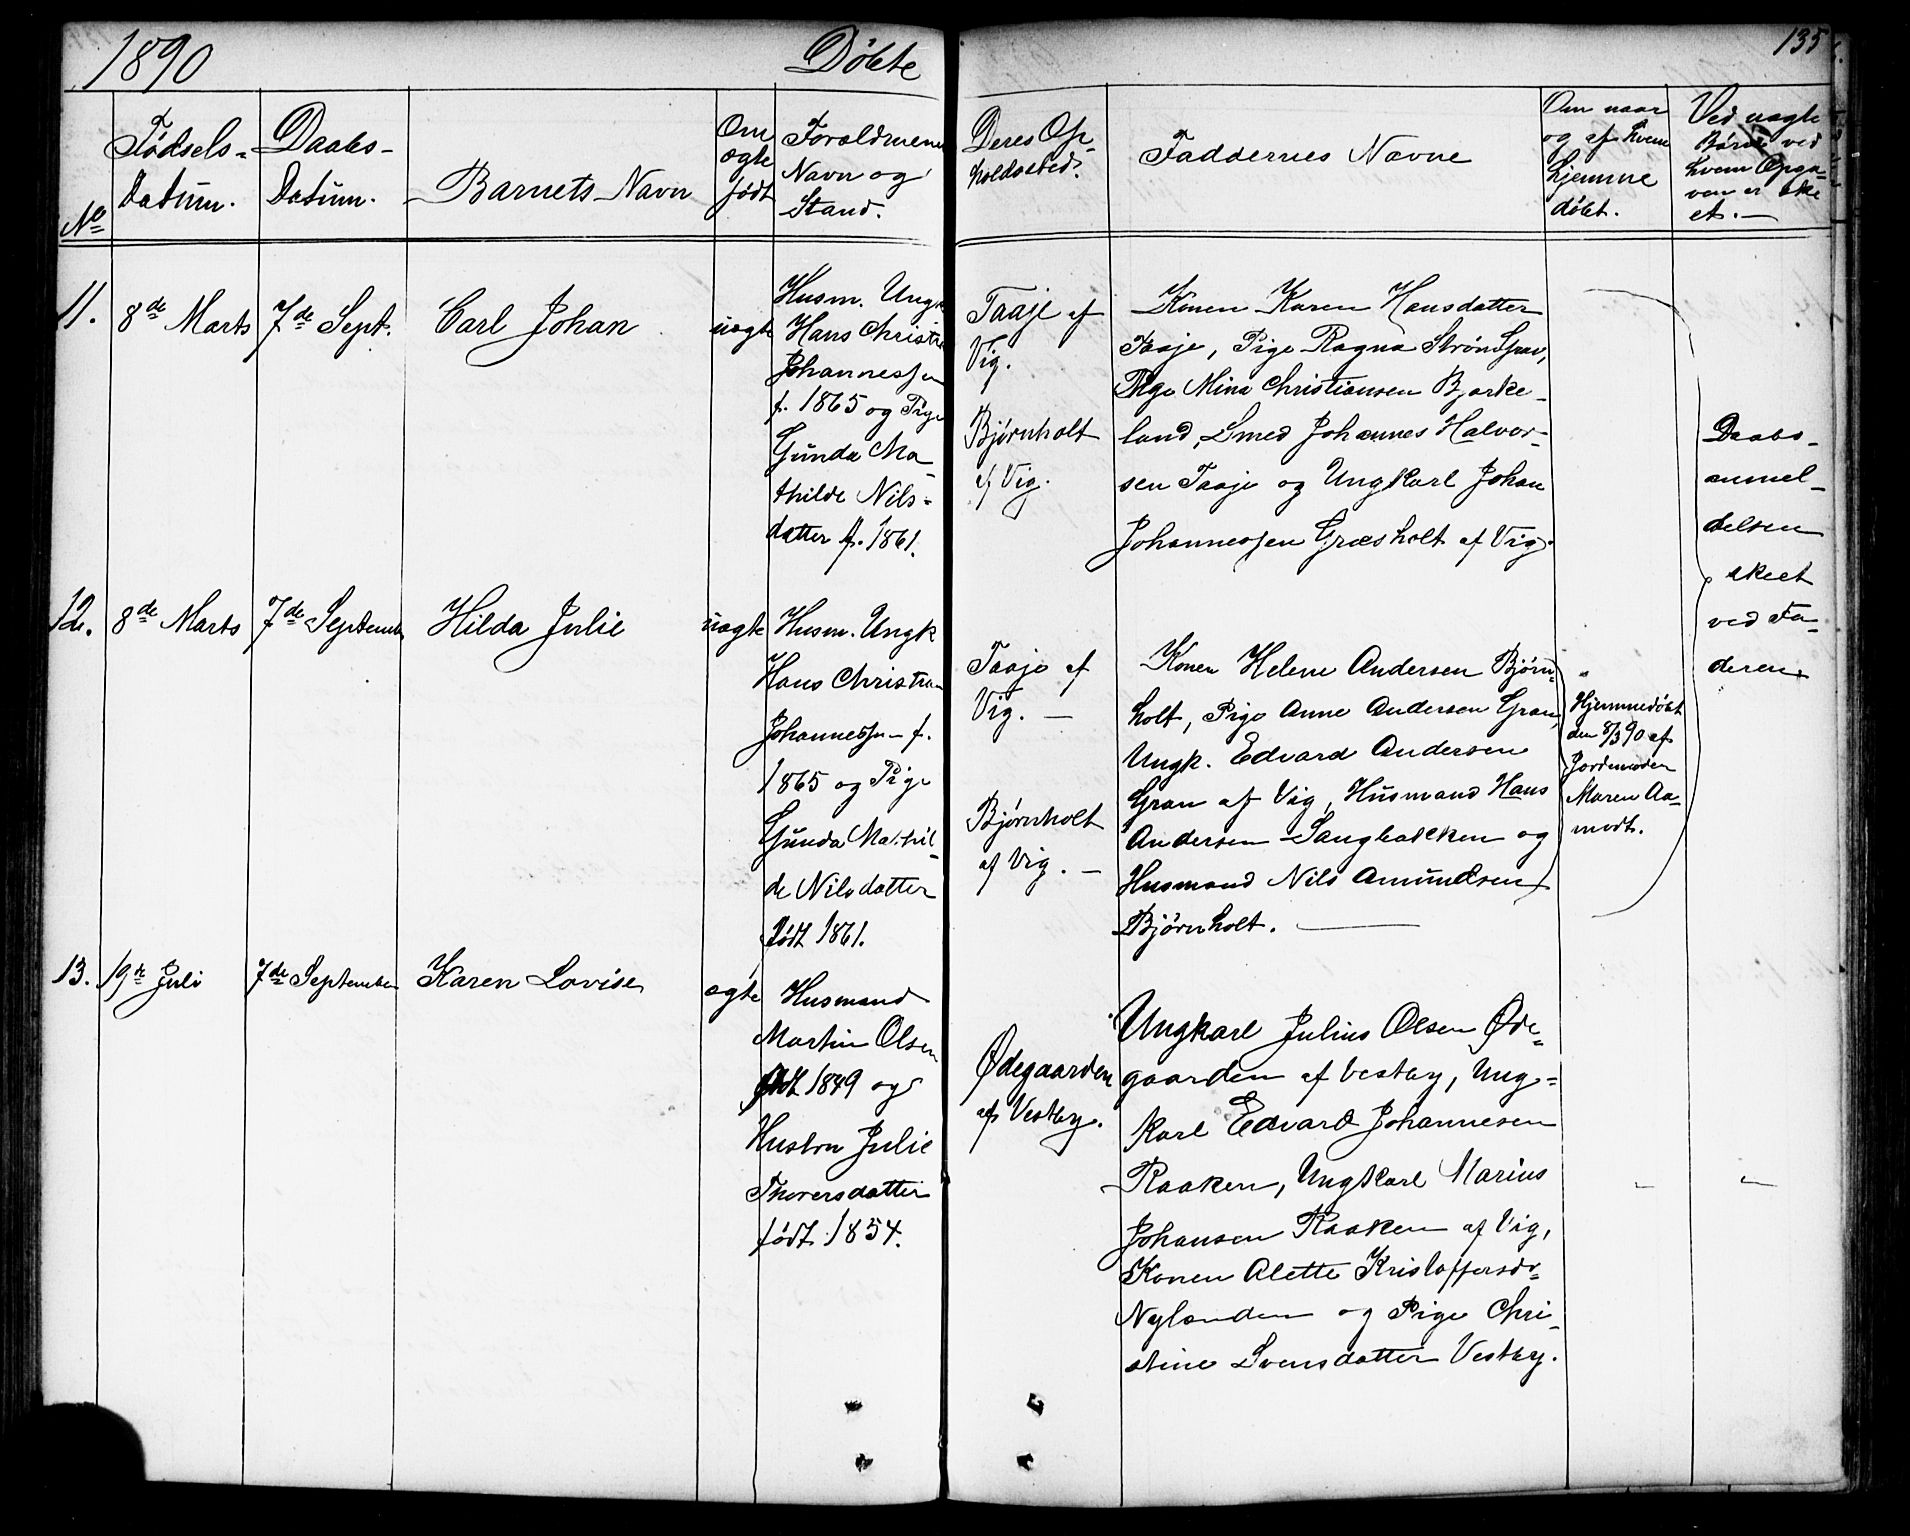 1890
Døbte
135
No
Fødsels-
Datum.
Daabs-
Datum.
Barnets Navn
Om
ægte
født
Forældrenes
Navn og
Stand.
Deres Op-
holdssted.
Faddernes Navne
Om naar
og af hvem
hjemme
døbt.
Ved uægte
Børn ved
hvem Opga-
ven er ske
et. —
11.
8de Marts
7de Sept.
Carl Johan
uægte
Husm. Ungk
Hans Christian
Johannessen
f. 1865 og Pige
Gunda Ma-
thilde Nils-
datter f. 1861.
Taaje af
Vig.
Bjørnholt
af Vig.
Konen Karen Hansdatter
Taaje, Pige Ragna
Pige Mina Christiansen Bjørke-
land, Smed Johannes Halvor-
sen Taaje og Ungkarl Johan
Johannessen Græsholt af Vig.
Daabs-
anmel-
delsen
skeet
ved Fa-
deren.
12.
8de Marts
7de Septemb
Hilda Julie
uægte
Husm. Ungk
Hans Christian
Johannessen f.
1865 og Pige
Gunda Mathil-
de Nilsdatter
født 1861.
Taaje af
Vig. —
Bjørnholt
af Vig. —
Konen Helene Andersen Bjørn-
holt, Pige Anne Andersen Gran,
Ungk. Edvard Andersen
Gran af Vig, Husmand Hans
Andersen Sangbakken og
Husmand Nils Amundsen
Bjørnholt. —
"
Hjemmedøbt
den 8/3 90 af
Jordemoder
Maren Aa-
modt.
13.
19de Juli
7de September
Karen Lovise
ægte
Husmand
Martin Olsen
født 1849 og
Hustru Julie
Thorersdatter
født 1854.
Ødegaarden
af Vestby.
Ungkarl Julius Olsen Øde-
gaarden af Vestby, Ung-
karl Edvard Johannesen
Raaken, Ungkarl Marius
Johansen Raaken af Vig,
Konen Alette Kristoffersdr-
Nylænden og Pige Chri-
stine Svensdatter Vestby.
"
"